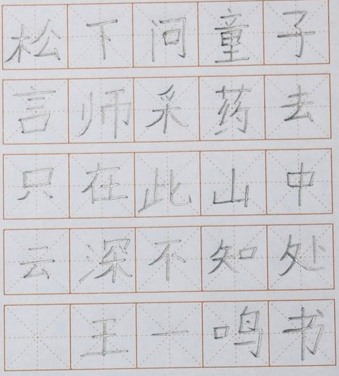 松下问童子
言师采药去
只在此山中
云深不知处
王一鸣书